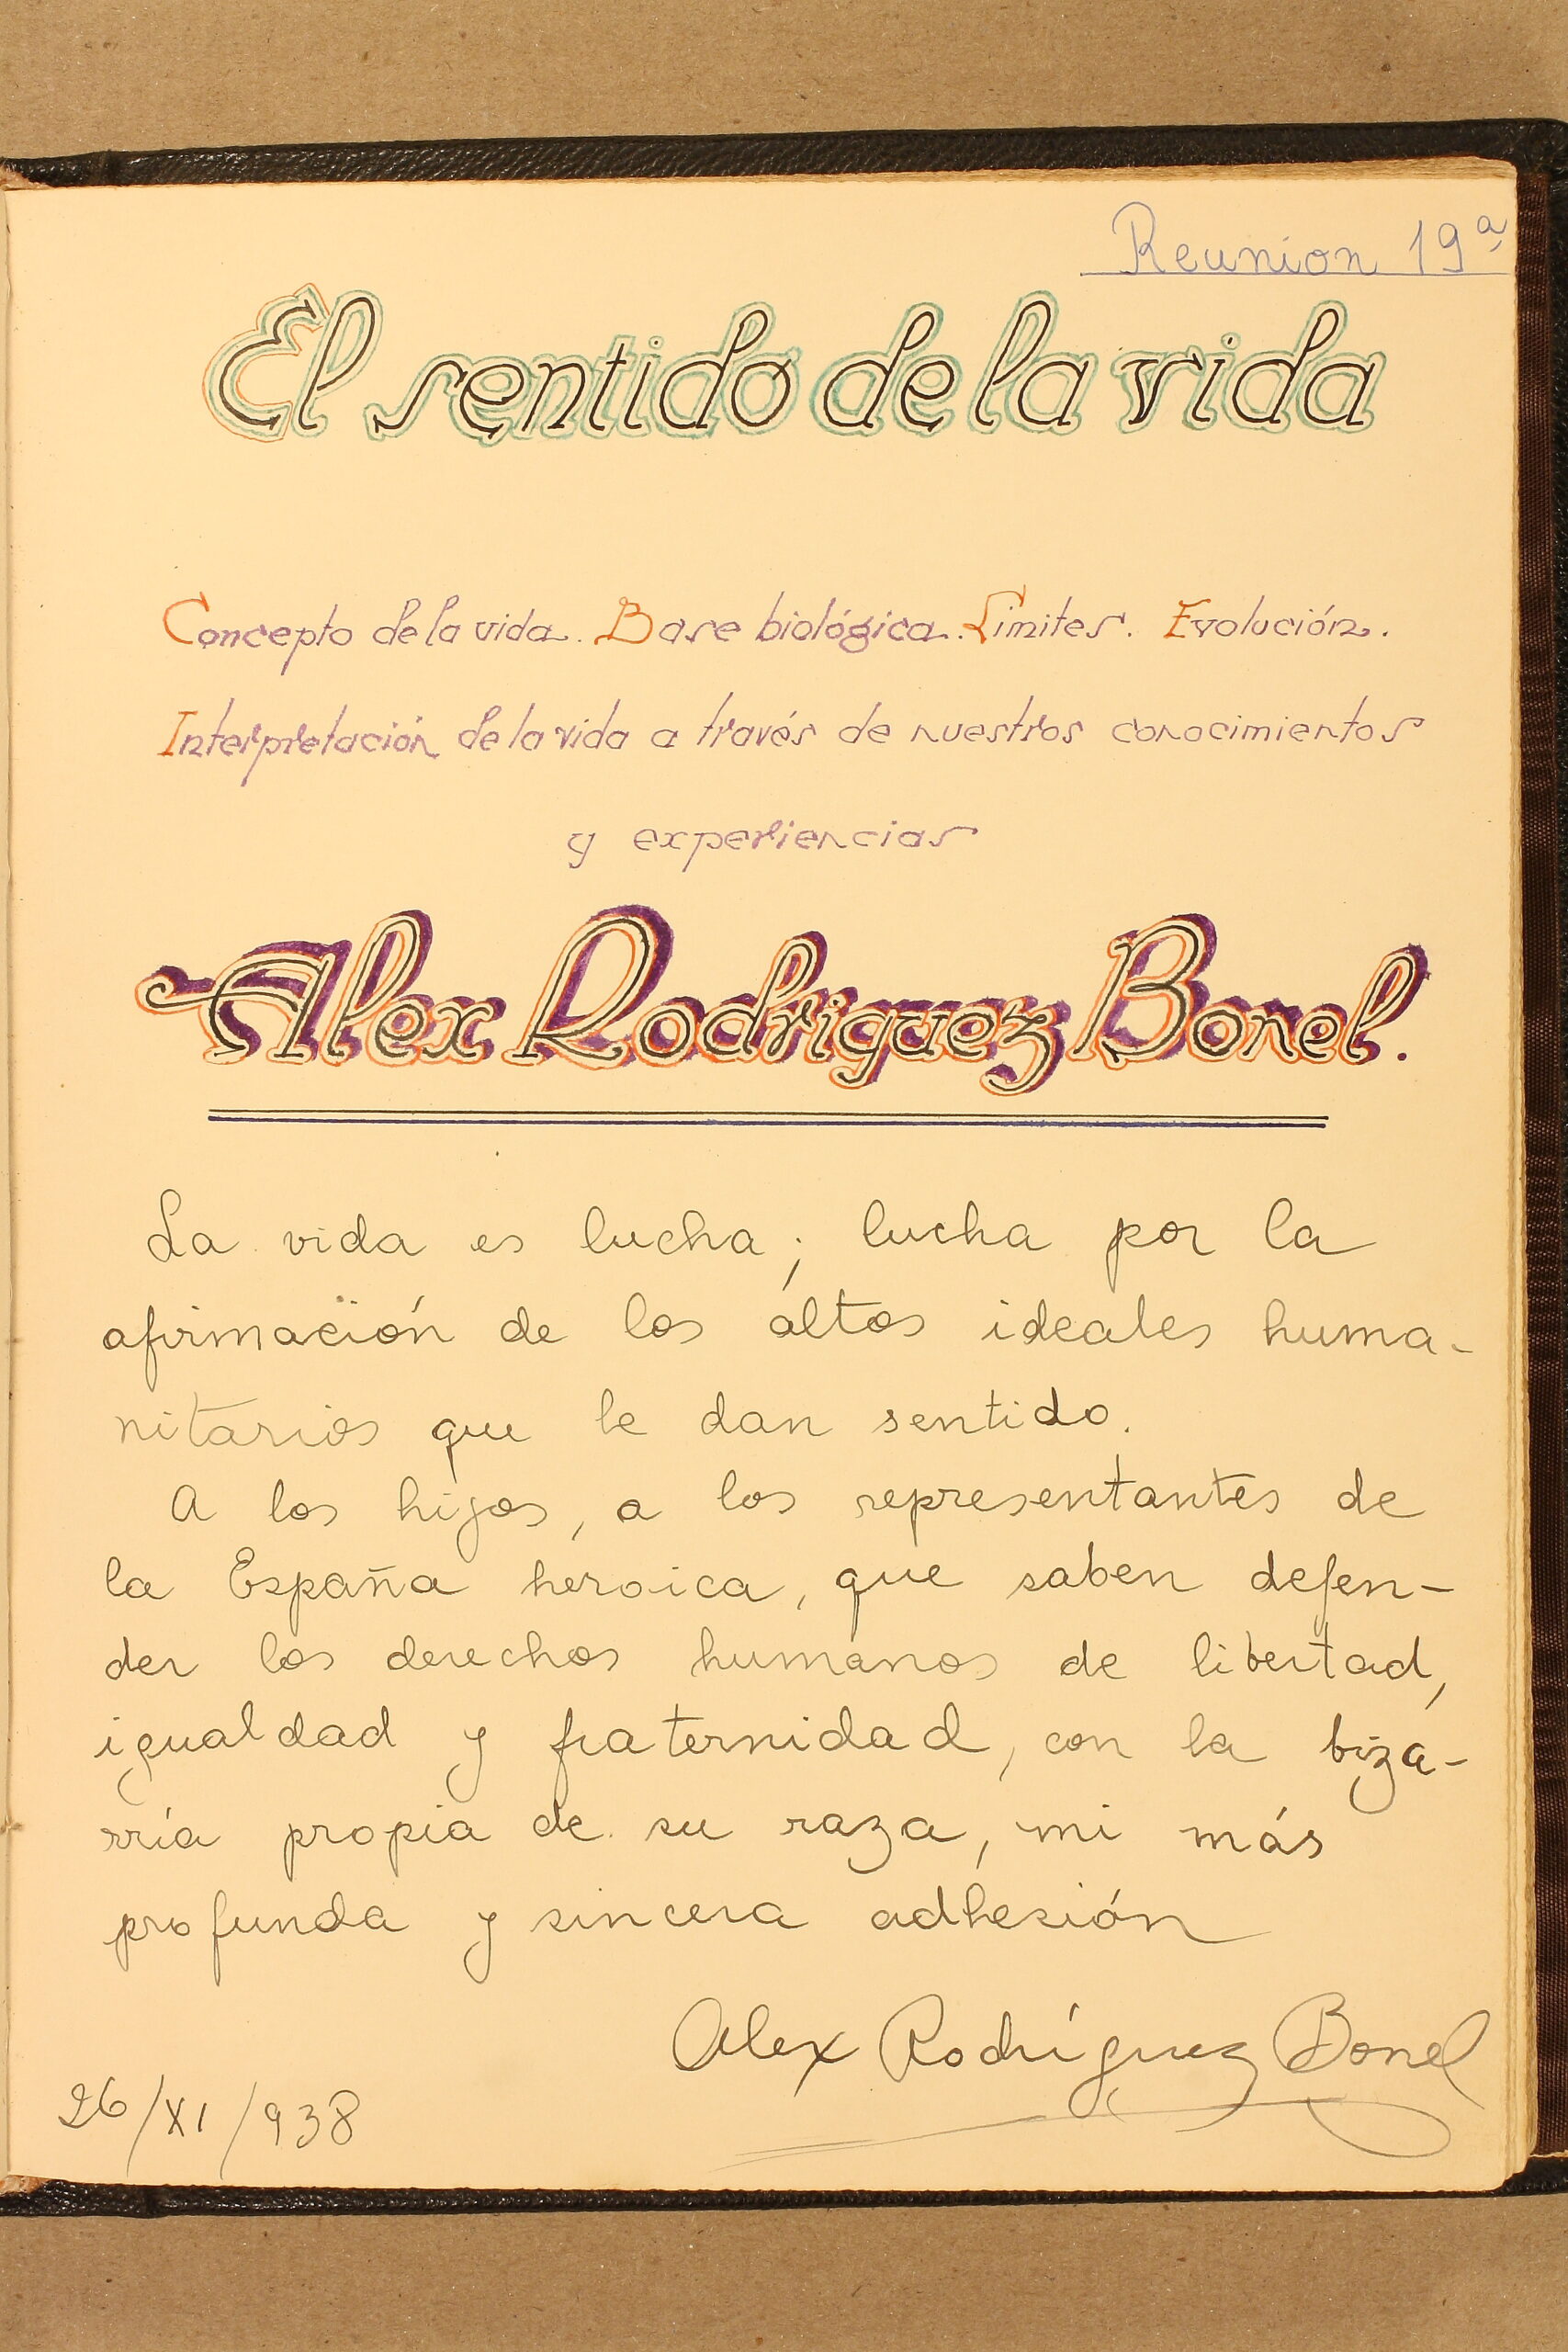 Reunion 19ª
El sentido de la vida
Concepto de la vida. Base biológica. Limites. Evolución.
Interpretación de la vida a través de nuestros conocimientos
y experiencias
Alex Rodriguez Bonel.
La vida es lucha; lucha por la
afirmación de los altos ideales huma-
nitarios que le dan sentido.
A los hijos, a los representantes de
la España heroica, que saben defen-
der los derechos humanos de libertad,
igualdad y fraternidad, con la biza-
rría propia de su raza, mi más
profunda y sincera adhesión
Alex Rodríguez Bonel
26/XI/938